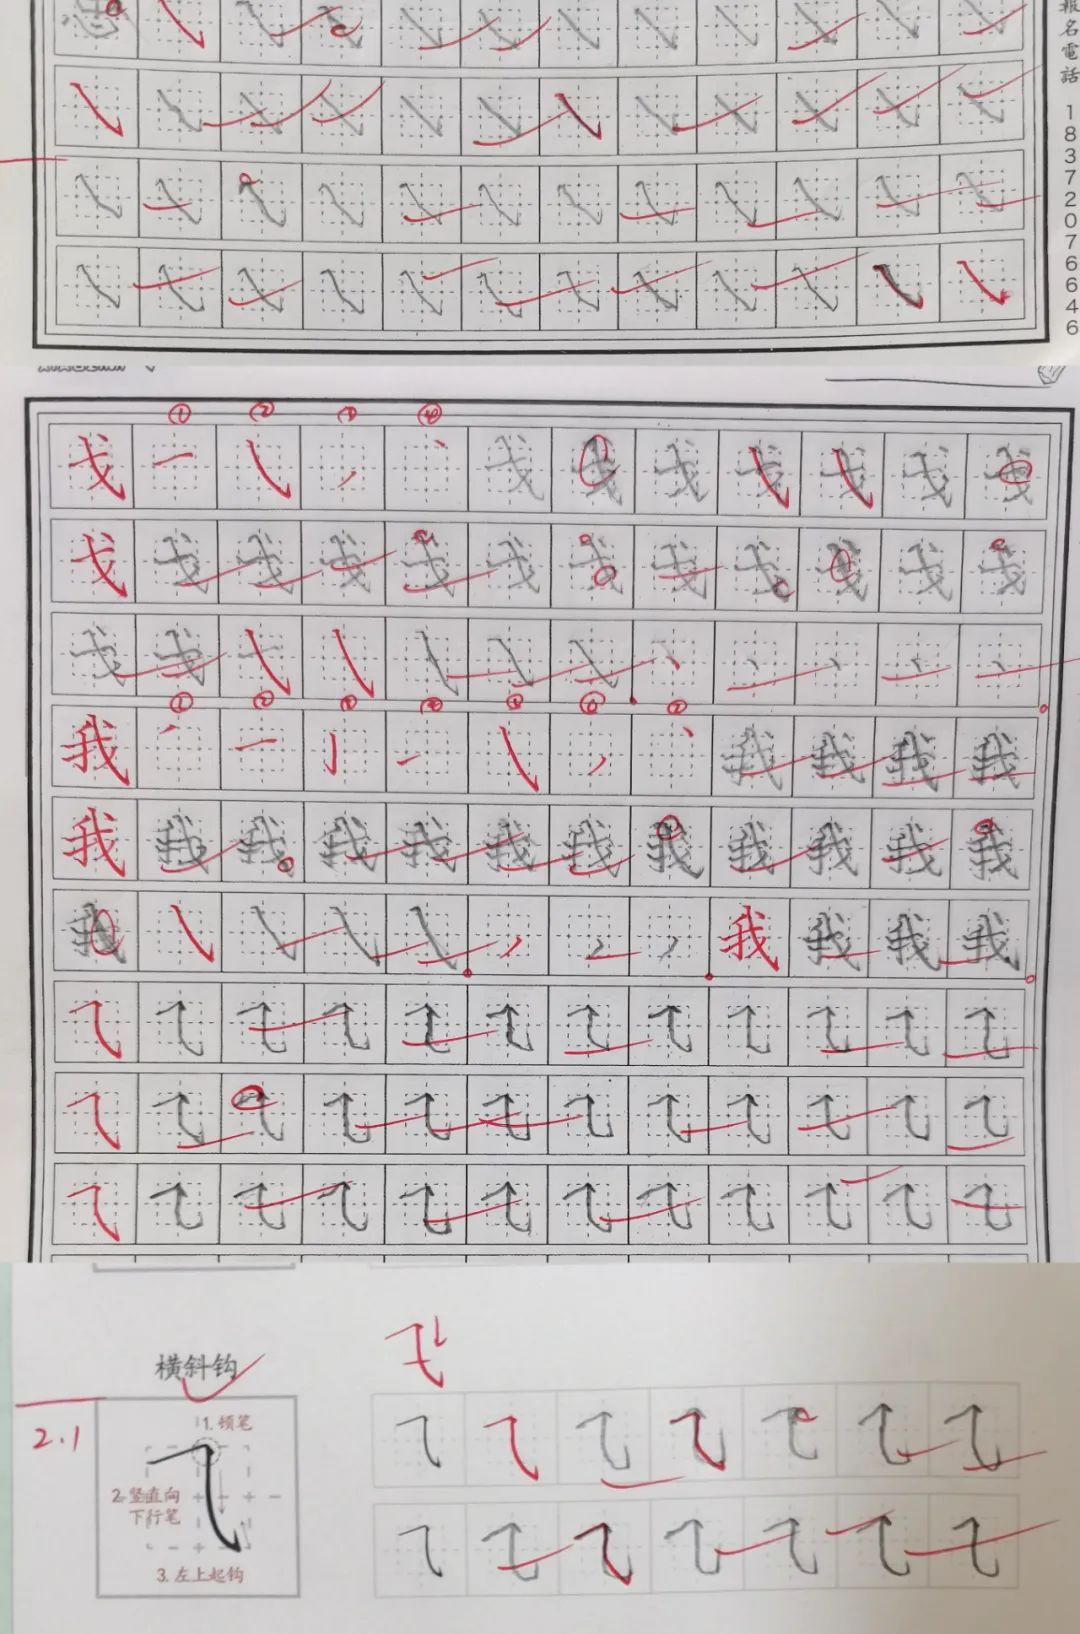 報名電話 18372076646
㇂ ㇂ ㇂ ㇂ ㇂ ㇂ ㇂ ㇂ ㇂ ㇂ ㇂
㇂ ㇂ ㇂ ㇂ ㇂ ㇂ ㇂ ㇂ ㇂ ㇂ ㇂ ㇂
㇂ ㇂ ㇂ ㇂ ㇂ ㇂ ㇂ ㇂ ㇂ ㇂ ㇂ ㇂
㇂ ㇂ ㇂ ㇂ ㇂ ㇂ ㇂ ㇂ ㇂ ㇂ ㇂ ㇂
① ② ③ ④
戈 一 ㇂ 丿 丶 戈 戈 戈 戈 戈 戈 戈
戈 戈 戈 戈 戈 戈 戈 戈 戈 戈 戈 戈
戈 戈 ㇂ ㇂ ㇂ ㇂ ㇂ 丶 丶 丶 丶 丶
① ② ③ ④ ⑤ ⑥ ⑦
我 丿 一 亅 ㇀ ㇂ 丿 丶 我 我 我 我
我 我 我 我 我 我 我 我 我 我 我 我
我 ㇂ ㇂ ㇂ ㇂ 丿 丿 丿 我 我 我 我
⺄ ⺄ ⺄ ⺄ ⺄ ⺄ ⺄ ⺄ ⺄ ⺄ ⺄ ⺄
⺄ ⺄ ⺄ ⺄ ⺄ ⺄ ⺄ ⺄ ⺄ ⺄ ⺄ ⺄
⺄ ⺄ ⺄ ⺄ ⺄ ⺄ ⺄ ⺄ ⺄ ⺄ ⺄ ⺄
横斜钩
2.1
1. 顿笔
2. 竖直向
下行笔
3. 左上起钩
⺄ ⺄ ⺄ ⺄ ⺄ ⺄ ⺄
⺄ ⺄ ⺄ ⺄ ⺄ ⺄ ⺄